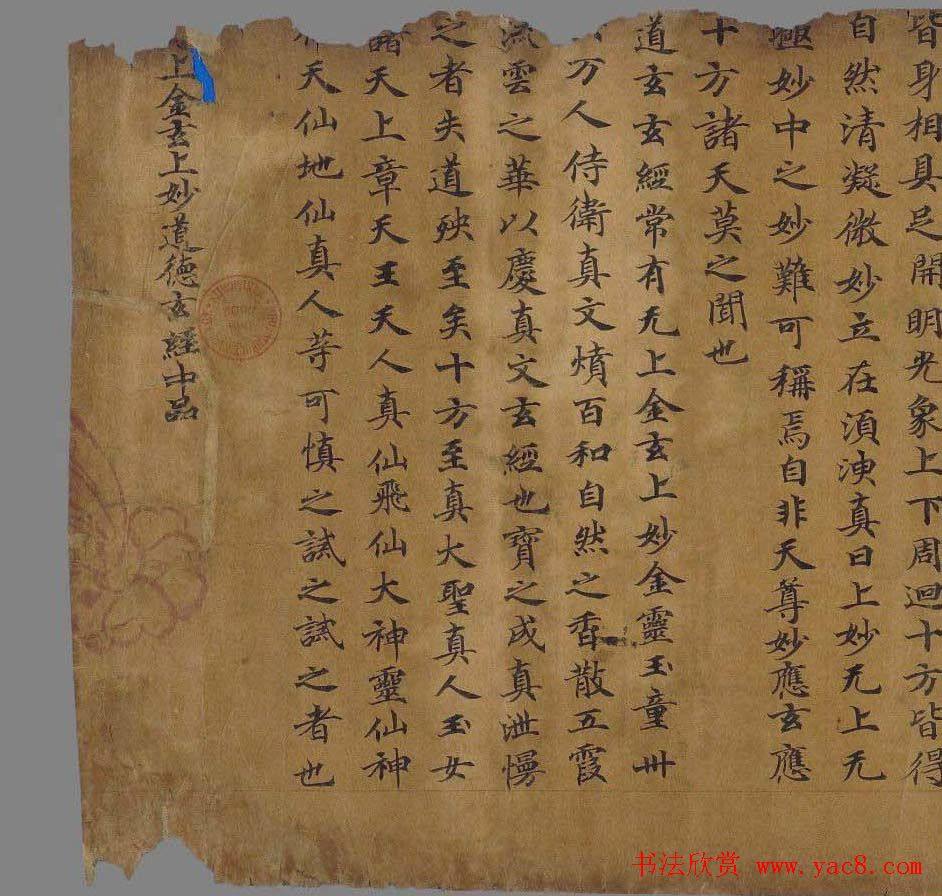 皆身相具足開明光象上下周迴十方皆得
自然清凝微妙立在澒洞真曰上妙无上无
極妙中之妙難可稱焉自非天尊妙應玄應
十方諸天莫之聞也
道玄玄經常有无上金玄上妙金靈玉童卌
万人侍衛真文燌百和自然之香散五霞
流雲之華以慶真文玄經也寶之成真泄慢
之者失道殃至矣十方至真大聖真人玉女
天上章天王天人真仙飛仙大神靈仙神
天仙地仙真人等可慎之誡之誡之者也
上金玄上妙道德玄經中品
书法欣赏 www.yac8.com